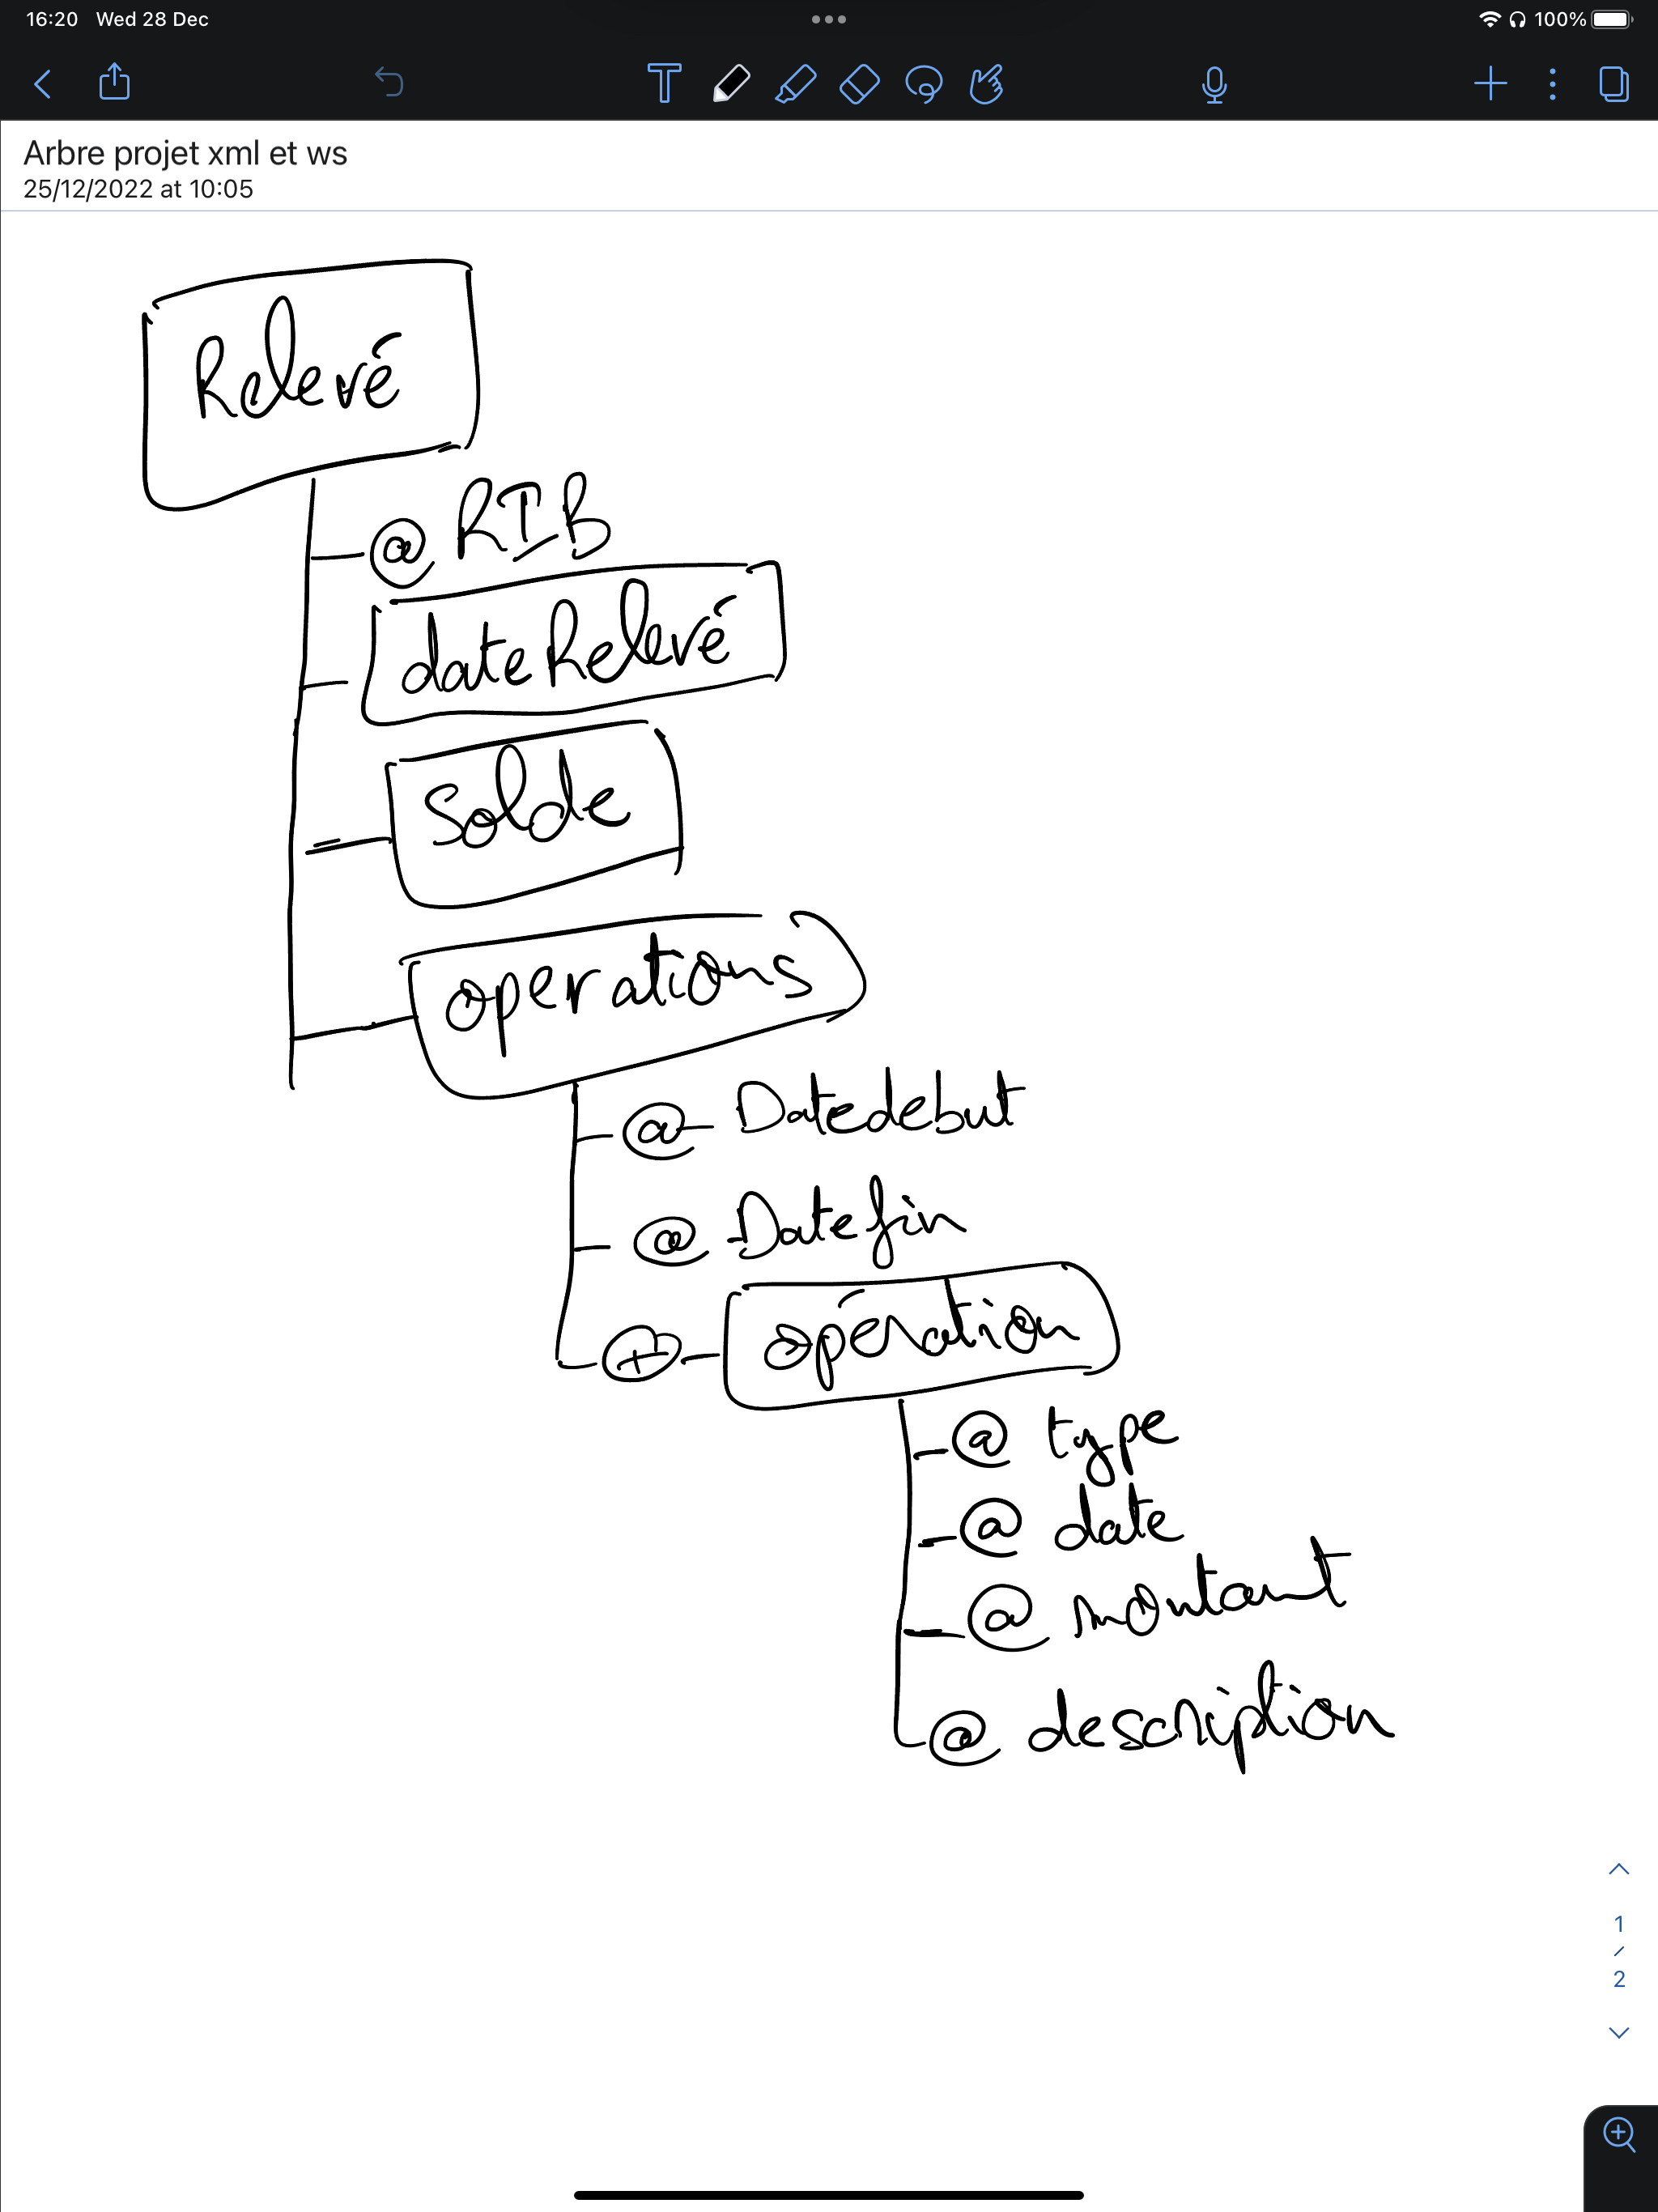 16:20 Wed 28 Dec
100%
Arbre projet xml et ws
25/12/2022 at 10:05
Relevé
@ RIB
dateRelevé
Solde
operations
@ Datedebut
@ Datefin
+ opération
@ type
@ date
@ montant
@ description
1
/
2